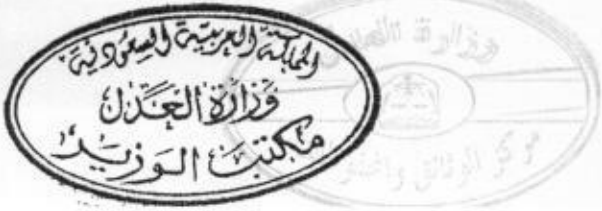 المملكة العربية السعودية
وزارة العدل
مكتب الوزير
وزارة العدل
مركز الوثائق